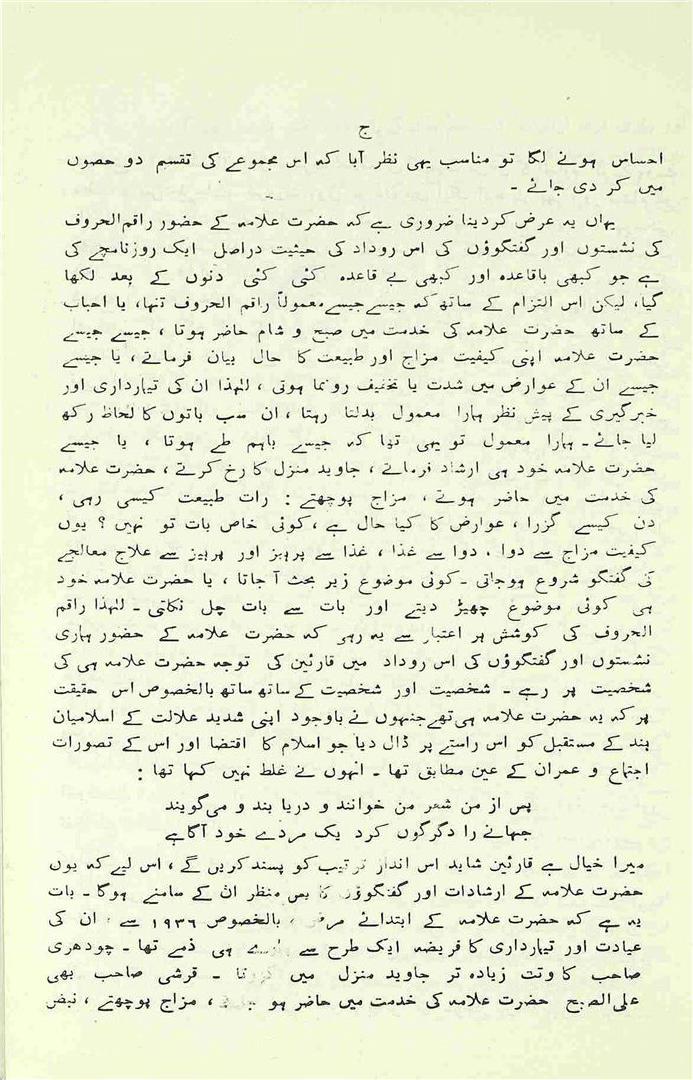 ج
احساس ہونے لگا تو مناسب یہی نظر آیا کہ اس مجموعے کی تقسیم دو حصوں
میں کر دی جائے ۔
یہاں یہ عرض کردینا ضروری ہے کہ حضرت علامہ کے حضور راقم الحروف
کی نشستوں اور گفتگوؤں کی اس روداد کی حیثیت دراصل ایک روزنامچے کی
ہے جو کبھی باقاعدہ اور کبھی بے قاعدہ کئی کئی دنوں کے بعد لکھا
گیا، لیکن اس التزام کے ساتھ کہ جیسے جیسے معمولاً راقم الحروف تنہا، یا احباب
کے ساتھ حضرت علامہ کی خدمت میں صبح و شام حاضر ہوتا ، جیسے جیسے
حضرت علامہ اپنی کیفیت مزاج اور طبیعت کا حال بیان فرماتے ، یا جیسے
جیسے ان کے عوارض میں شدت یا تخفیف رونما ہوتی ، لہٰذا ان کی تیمارداری اور
خبرگیری کے پیش نظر ہمارا معمول بدلتا رہتا ، ان سب باتوں کا لحاظ رکھ
لیا جائے ۔ ہمارا معمول تو یہی تھا کہ جیسے باہم طے ہوتا ، یا جیسے
حضرت علامہ خود ہی ارشاد فرماتے ، جاوید منزل کا رخ کرتے ، حضرت علامہ
کی خدمت میں حاضر ہوتے ، مزاج پوچھتے : رات طبیعت کیسی رہی ،
دن کیسے گزرا ، عوارض کا کیا حال ہے ، کوئی خاص بات تو نہیں ؟ یوں
کیفیت مزاج سے دوا ، دوا سے غذا ، غذا سے پرہیز اور پرہیز سے علاج معالجے
کی گفتگو شروع ہوجاتی ۔ کوئی موضوع زیر بحث آ جاتا ، یا حضرت علامہ خود
ہی کوئی موضوع چھیڑ دیتے اور بات سے بات چل نکلتی ۔ لہٰذا راقم
الحروف کی کوشش ہر اعتبار سے یہ رہی کہ حضرت علامہ کے حضور ہماری
نشستوں اور گفتگوؤں کی اس روداد میں قارئین کی توجہ حضرت علامہ ہی کی
شخصیت پر رہے ۔ شخصیت اور شخصیت کے ساتھ ساتھ بالخصوص اس حقیقت
پر کہ یہ حضرت علامہ ہی تھے جنہوں نے باوجود اپنی شدید علالت کے اسلامیان
ہند کے مستقبل کو اس راستے پر ڈال دیا جو اسلام کا اقتضا اور اس کے تصورات
اجتماع و عمران کے عین مطابق تھا ۔ انہوں نے غلط نہیں کہا تھا :
پس از من شعر من خوانند و دریا بند و می گویند
جہانے را دگرگوں کرد یک مردے خود آگاہے
میرا خیال ہے قارئین شاید اس انداز ترتیب کو پسند کریں گے ، اس لیے کہ یوں
حضرت علامہ کے ارشادات اور گفتگوؤں کا پس منظر ان کے سامنے ہوگا ۔ بات
یہ ہے کہ حضرت علامہ کے ابتدائے مرض ، بالخصوص ۱۹۳۶ سے ، ان کی
عیادت اور تیمارداری کا فریضہ ایک طرح سے ہمارے ہی ذمے تھا ۔ چودھری
صاحب کا وقت زیادہ تر جاوید منزل میں گزرتا ۔ قرشی صاحب بھی
علی الصبح حضرت علامہ کی خدمت میں حاضر ہو ، مزاج پوچھتے ، نبض